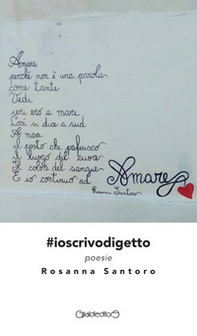 Amore
perché non è una parola
come tante
Vedi
ieri ero a mare
Così si dice a sud
A maa
il posto che preferisco
il luogo del cuore
Il colore del sangue
E io continuo ad
Amare
Rosanna Santoro
#ioscrivodigetto
poesie
Rosanna Santoro